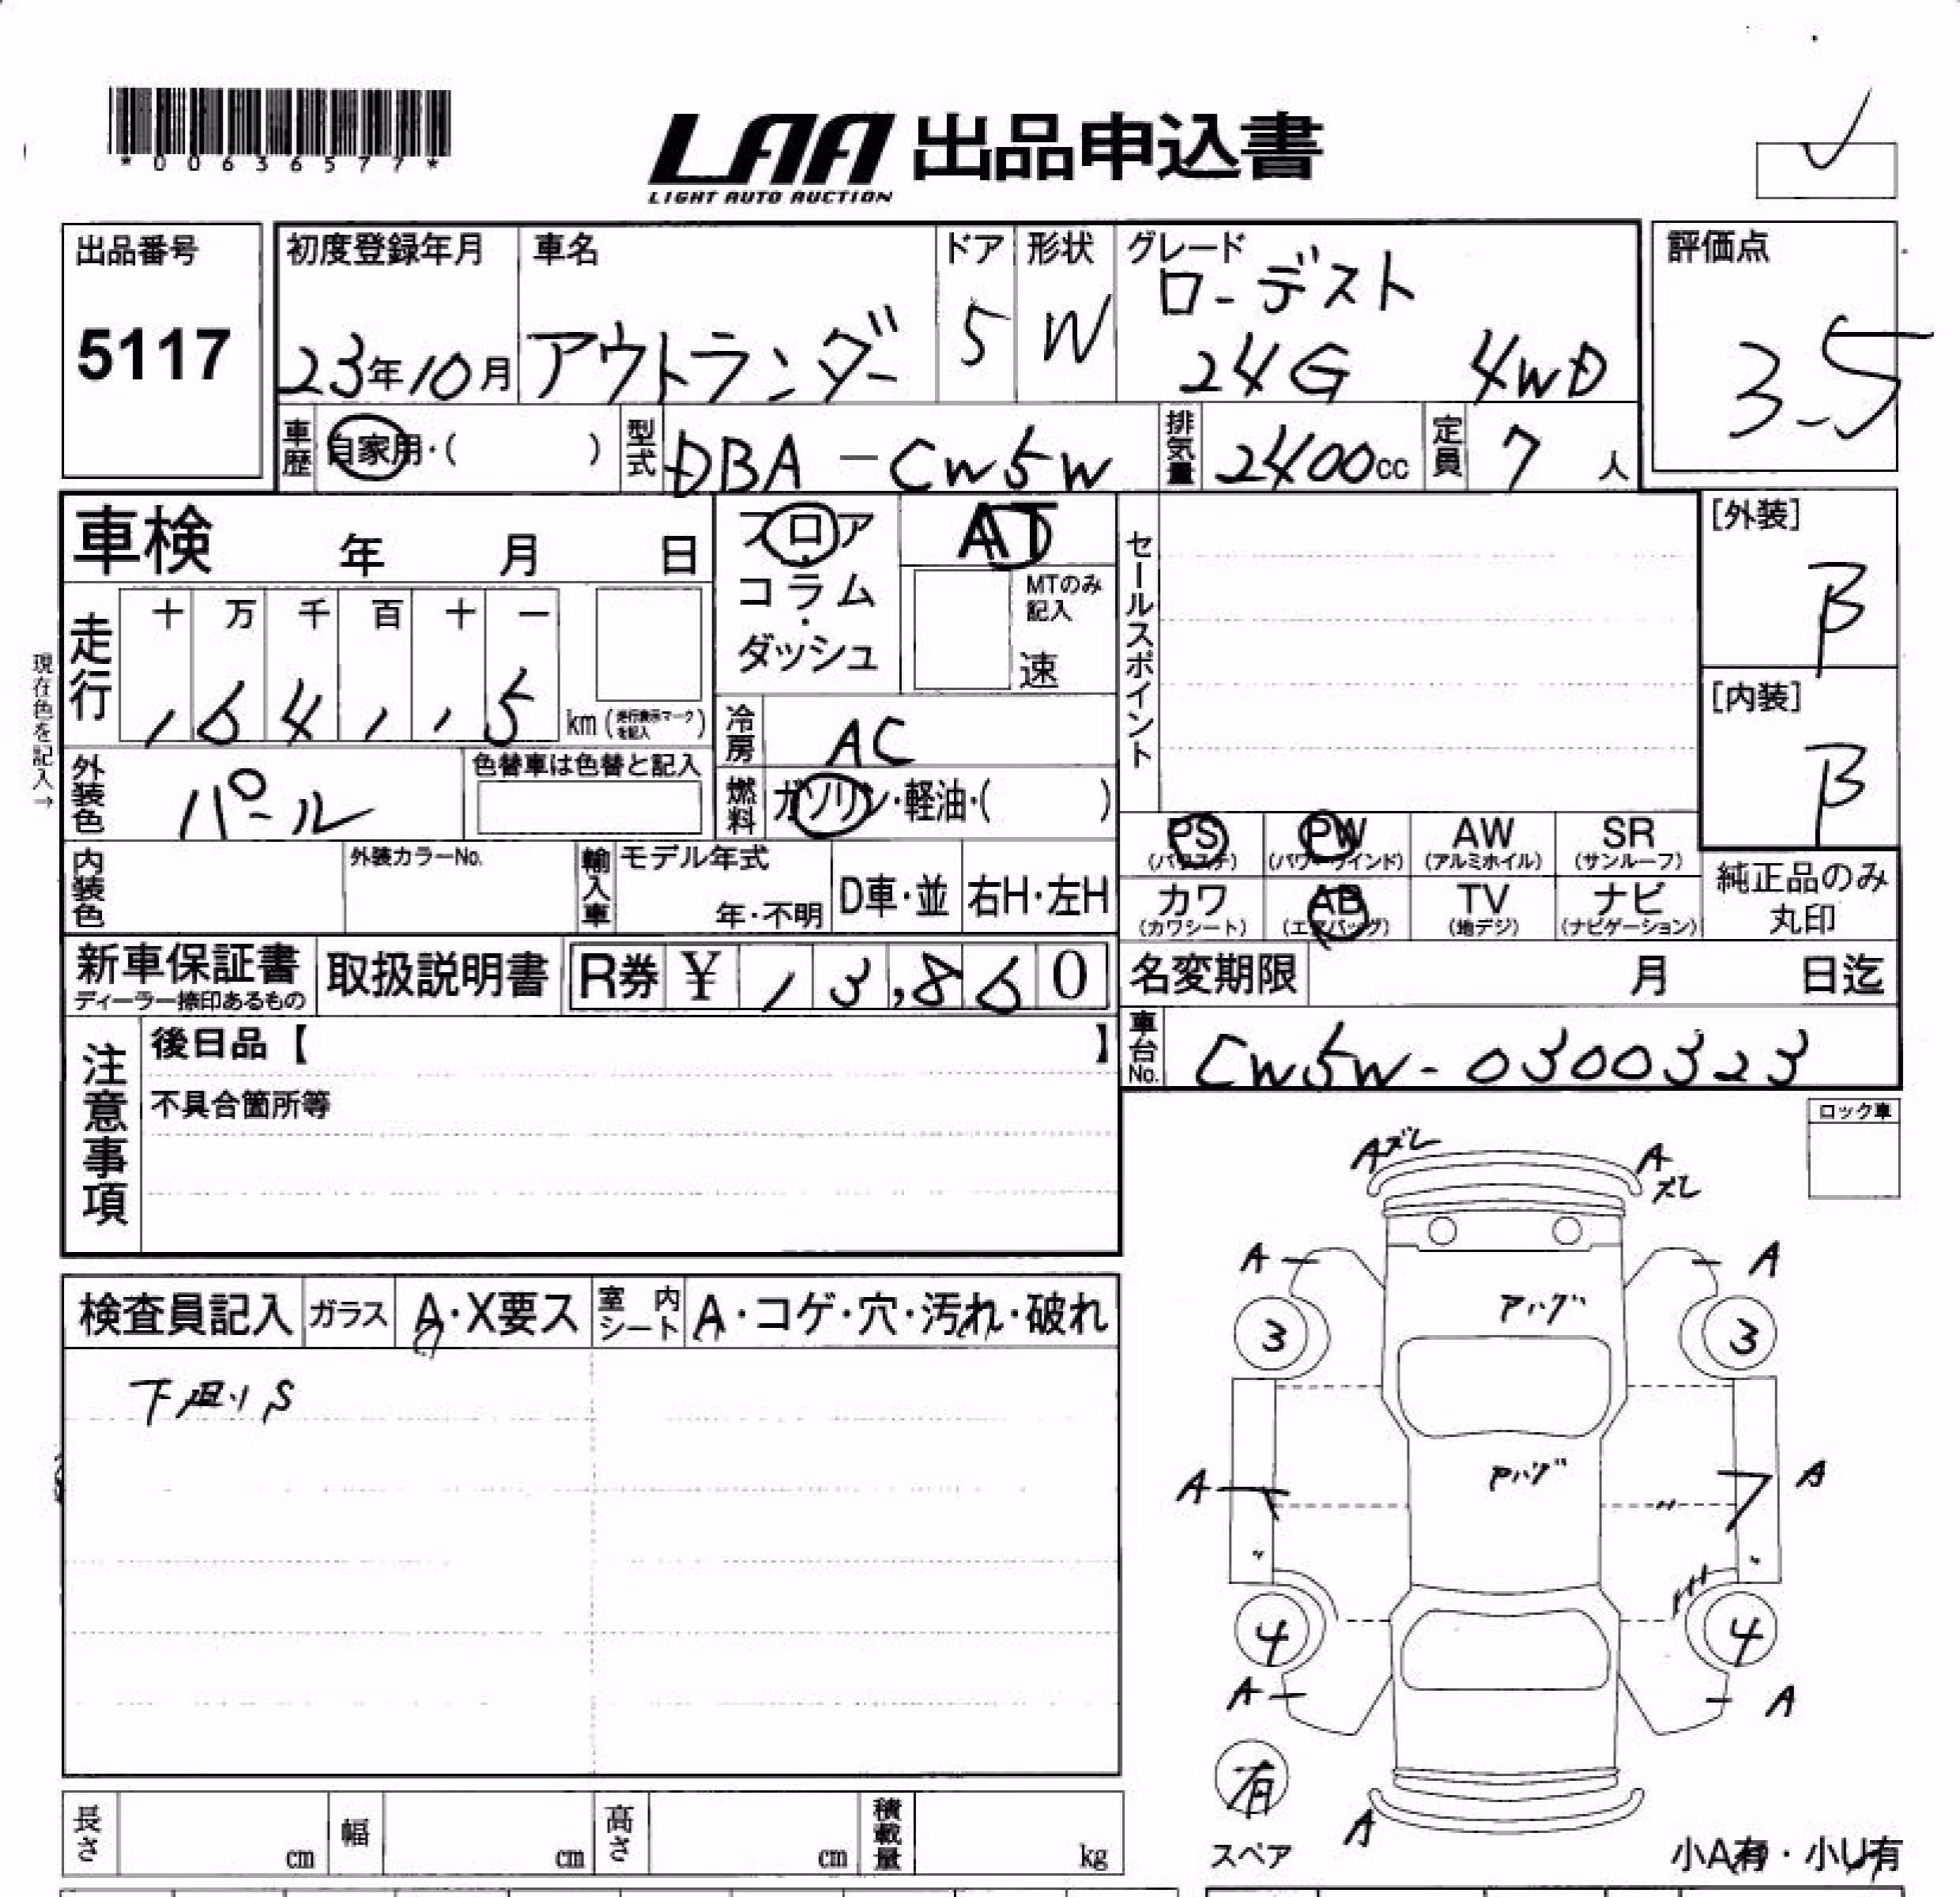 *00636577*
LAA 出品申込書
LIGHT AUTO AUCTION
出品番号
5117
初度登録年月
23年10月
車名
アウトランダー
ドア
5
形状
W
グレード
ローデスト
24G 4WD
評価点
3.5
車歴 自家用・( )
型式 DBA-CW5W
排気量 2400cc
定員 7人
車検 年 月 日
フロア・コラム・ダッシュ
AT
MTのみ記入
速
セールスポイント
[外装]
B
[内装]
B
現在色を記入→
走行 十 万 千 百 十 一
1 6 4 1 1 5 km (走行表示マークを記入)
冷房 AC
外装色 パール
色替車は色替と記入
燃料 ガソリン・軽油・( )
内装色
外装カラーNo.
輸入車
モデル年式
年・不明
D車・並
右H・左H
PS (パワステ)
PW (パワーウインド)
AW (アルミホイル)
SR (サンルーフ)
カワ (カワシート)
AB (エアバッグ)
TV (地デジ)
ナビ (ナビゲーション)
純正品のみ丸印
新車保証書
ディーラー捺印あるもの
取扱説明書
R券 ¥ 13,860
名変期限 月 日迄
車台No. CW5W-0300323
注意事項
後日品【 】
不具合箇所等
ロック車
Aズレ
A ズレ
A
A
アハグ
3
3
アハグ
A
A
4
4
A
A
有
スペア
A
小A有・小U有
検査員記入
ガラス A・X要ス
室内シート A・コゲ・穴・汚れ・破れ
下廻りS
長さ cm
幅 cm
高さ cm
積載量 kg